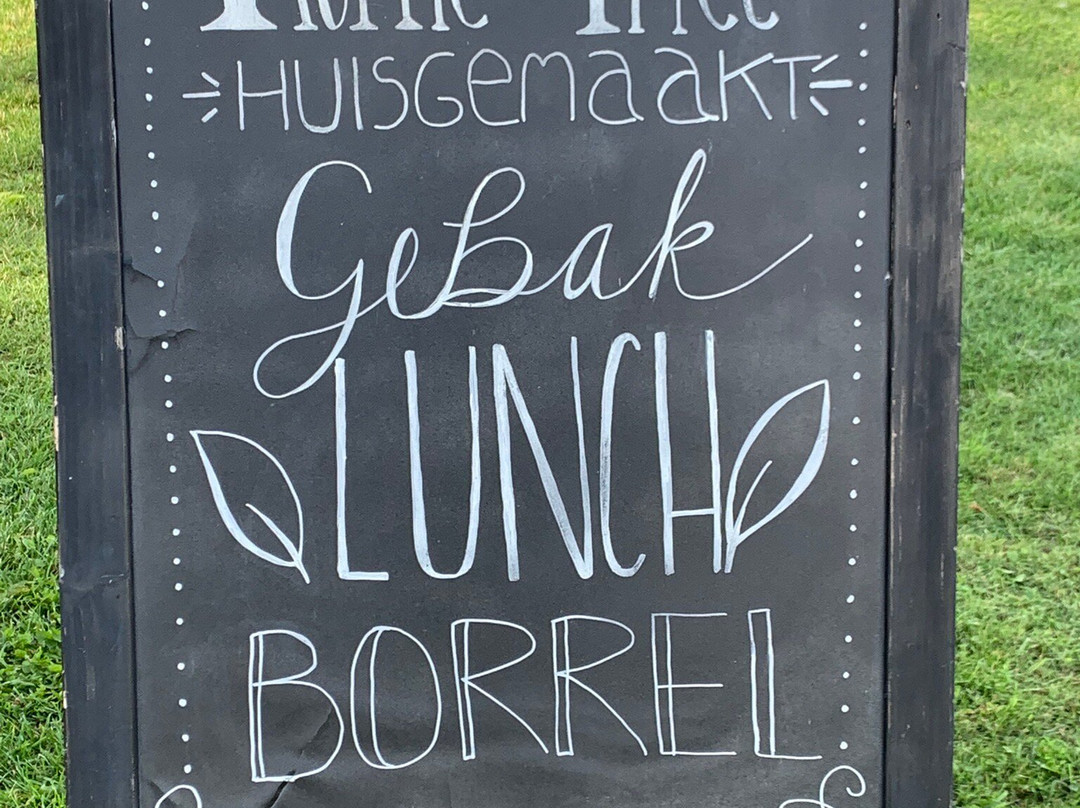 HUISGEMAAKT
Gebak
LUNCH
BORREL